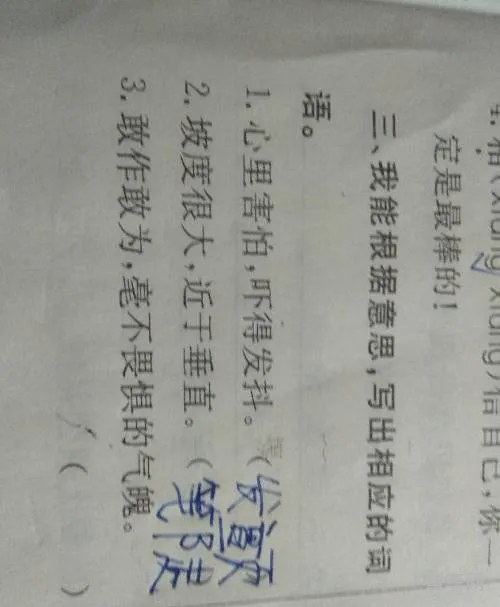 4. 相(xiāng xiàng)信自己,你一
定是最棒的!
三、我能根据意思,写出相应的词
语。
1. 心里害怕,吓得发抖。(发颤
2. 坡度很大,近于垂直。(笔陡
3. 敢作敢为,毫不畏惧的气魄。
( )